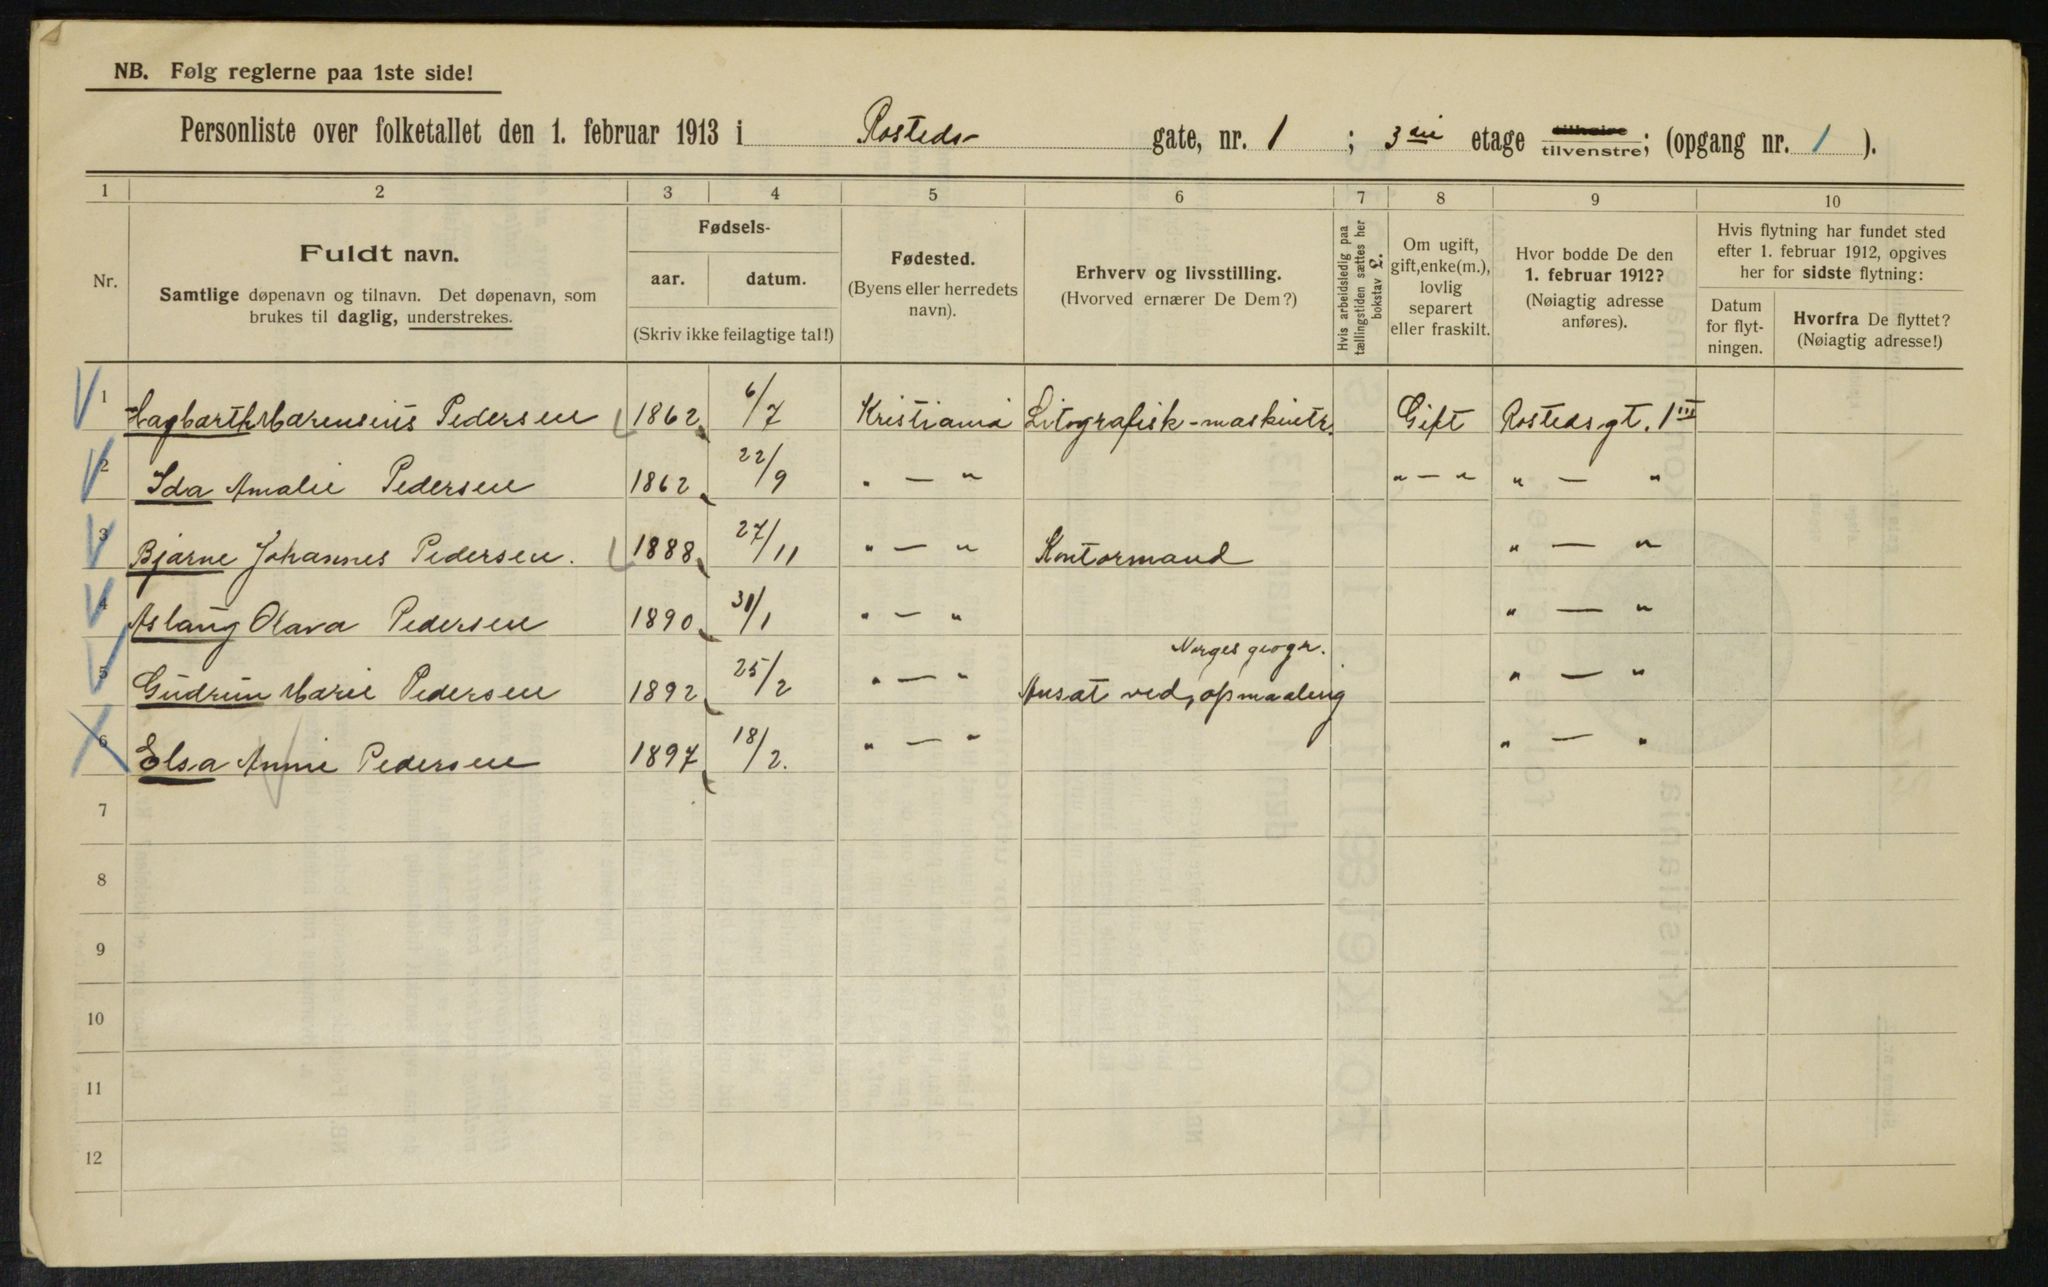 NB. Følg reglerne paa 1ste side!
Personliste over folketallet den 1. februar 1913 i Rosteds- gate, nr. 1 ; 3die etage tilhøire tilvenstre; (opgang nr. 1 ).
1 2 3 4 5 6 7 8 9 10
Nr.
Fuldt navn.
Samtlige døpenavn og tilnavn. Det døpenavn, som
brukes til daglig, understrekes.
Fødsels-
aar. datum.
(Skriv ikke feilagtige tal!)
Fødested.
(Byens eller herredets
navn).
Erhverv og livsstilling.
(Hvorved ernærer De Dem?)
Hvis arbeidsledig paa
tællingstiden sættes her
bokstav L.
Om ugift,
gift, enke(m.),
lovlig
separert
eller fraskilt.
Hvor bodde De den
1. februar 1912?
(Nøiagtig adresse
anføres).
Hvis flytning har fundet sted
efter 1. februar 1912, opgives
her for sidste flytning:
Datum
for flyt-
ningen.
Hvorfra De flyttet?
(Nøiagtig adresse!)
1 Hagbarth Marensius Pedersen 1862 6/7 Kristiania Litografisk-maskintr. Gift Rosteds gt. 1 III
2 Ida Amalie Pedersen 1862 22/9 " — " " — " " — "
3 Bjarne Johannes Pedersen. 1888 27/11 " — " Kontormand " — "
4 Aslaug Olava Pedersen 1890 31/1 " — " " — "
Norges geogr.
5 Gudrun Marie Pedersen 1892 25/2 " — " Ansat ved, opmaaling " — "
6 Elsa Annie Pedersen 1897 18/2. " — " " — "
7
8
9
10
11
12